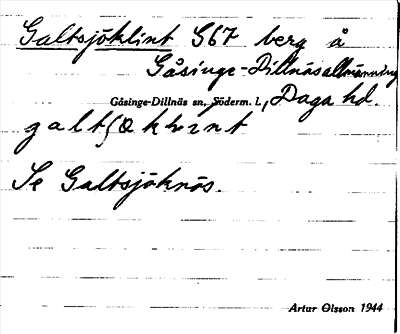 Galtsjöklint S67 berg å
Gåsinge-Dillnäs allmänning
Gåsinge-Dillnäs sn, Söderm. l., Daga hd.
Se Galtsjöknös.
Artur Olsson 1944